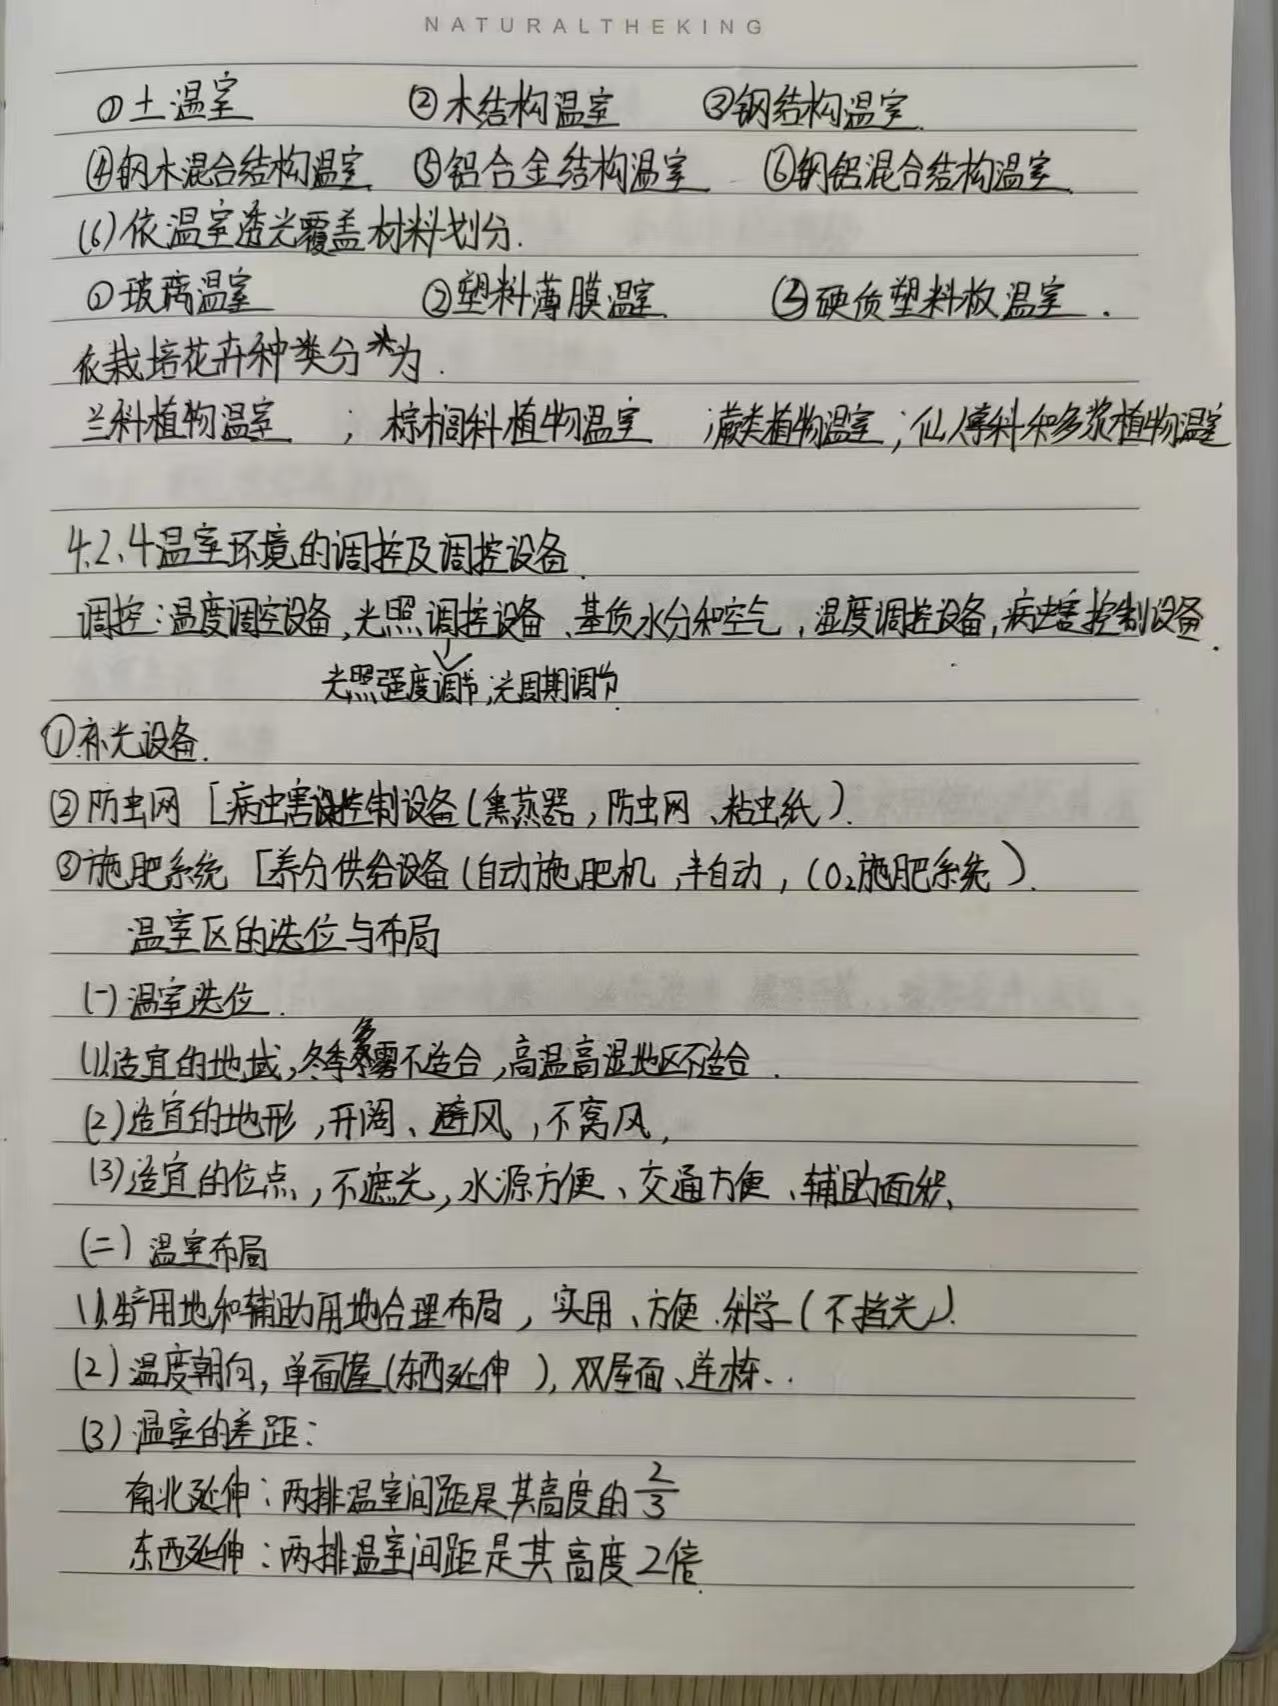 NATURALTHEKING
①土温室 ②木结构温室 ③钢结构温室.
④钢木混合结构温室 ⑤铝合金结构温室 ⑥钢铝混合结构温室.
(6)依温室透光覆盖材料划分.
①玻璃温室 ②塑料薄膜温室. ③硬质塑料板温室.
依栽培花卉种类分为.
兰科植物温室 ; 棕榈科植物温室 ;蕨类植物温室;仙人掌科和多浆植物温室
4.2.4温室环境的调控及调控设备.
调控:温度调控设备,光照调控设备、基质水分和空气,湿度调控设备,病虫害控制设备.
光照强度调节;光周期调节.
①补光设备.
②防虫网 [病虫害控制设备(熏蒸器,防虫网、粘虫纸).
③施肥系统 [养分供给设备(自动施肥机,半自动,CO₂施肥系统).
温室区的选位与布局
(一)温室选位.
(1)适宜的地域,冬季多雾不适合,高温高湿地区不适合.
(2)适宜的地形,开阔、避风,不窝风,
(3)适宜的位点,不遮光,水源方便、交通方便、辅助面积、
(二)温室布局
(1)生产用地和辅助用地合理布局,实用、方便.科学(不挡光).
(2)温度朝向,单面屋(东西延伸),双屋面、连栋..
(3)温室的差距:
南北延伸:两排温室间距是其高度的2/3
东西延伸:两排温室间距是其高度2倍.